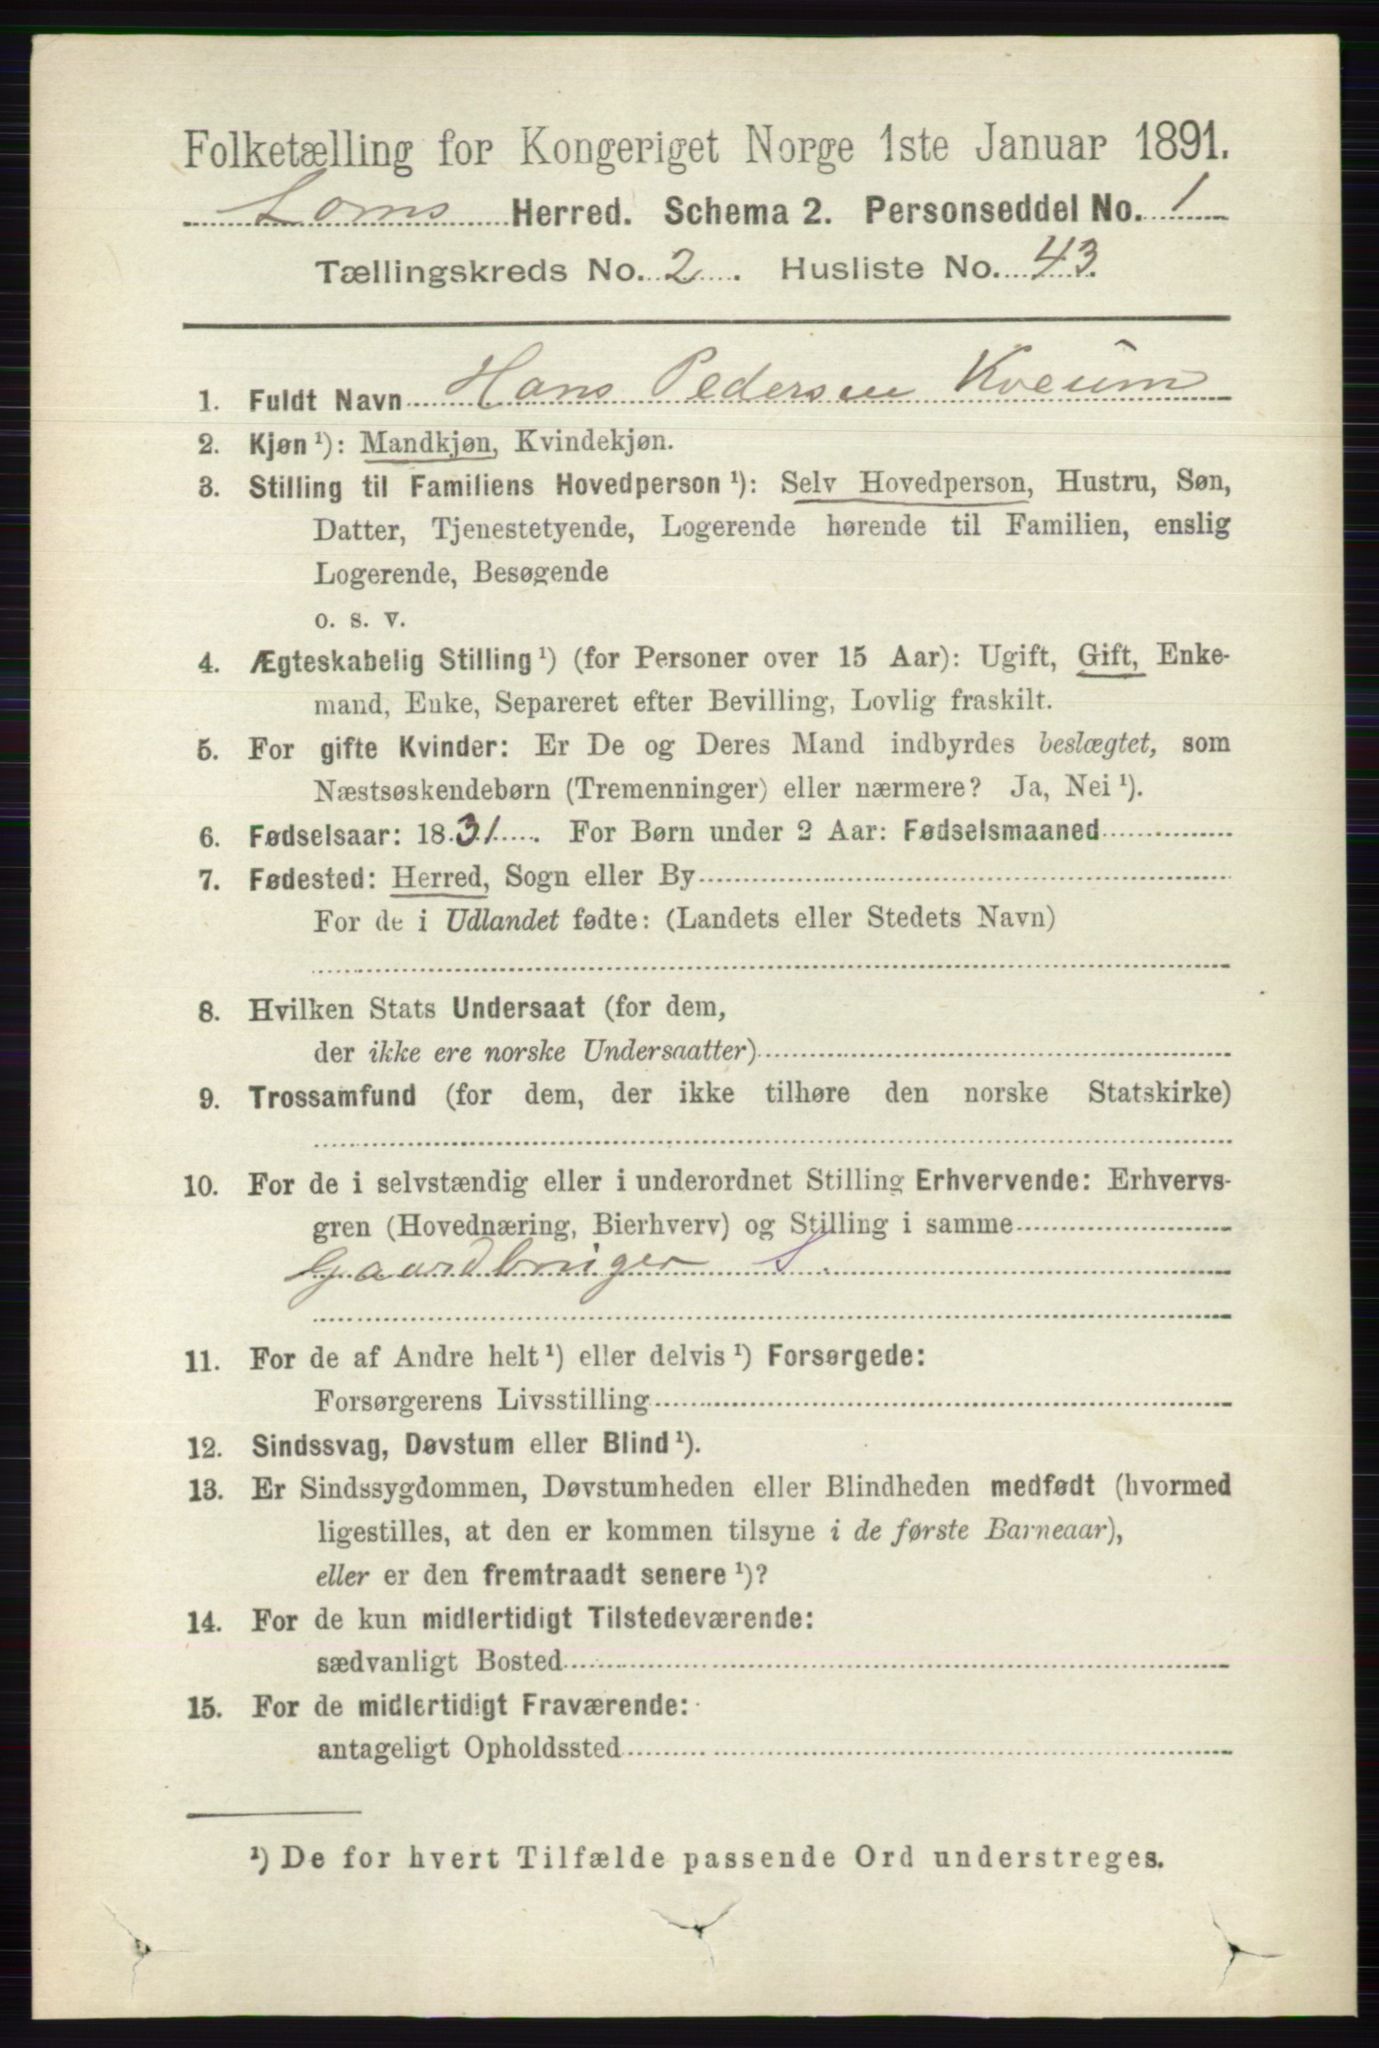 Folketælling for Kongeriget Norge 1ste Januar 1891.
Loms Herred. Schema 2. Personseddel No. 1
Tællingskreds No. 2. Husliste No. 43.
1. Fuldt Navn Hans Pedersen Kveum
2. Kjøn¹): Mandkjøn, Kvindekjøn.
3. Stilling til Familiens Hovedperson¹): Selv Hovedperson, Hustru, Søn,
Datter, Tjenestetyende, Logerende hørende til Familien, enslig
Logerende, Besøgende
o. s. v.
4. Ægteskabelig Stilling¹) (for Personer over 15 Aar): Ugift, Gift, Enke-
mand, Enke, Separeret efter Bevilling, Lovlig fraskilt.
5. For gifte Kvinder: Er De og Deres Mand indbyrdes beslægtet, som
Næstsøskendebørn (Tremenninger) eller nærmere? Ja, Nei¹).
6. Fødselsaar: 1831. For Børn under 2 Aar: Fødselsmaaned
7. Fødested: Herred, Sogn eller By
For de i Udlandet fødte: (Landets eller Stedets Navn)
8. Hvilken Stats Undersaat (for dem,
der ikke ere norske Undersaatter)
9. Trossamfund (for dem, der ikke tilhøre den norske Statskirke)
10. For de i selvstændig eller i underordnet Stilling Erhvervende: Erhvervs-
gren (Hovednæring, Bierhverv) og Stilling i samme
Gaardbruger S.
11. For de af Andre helt¹) eller delvis¹) Forsørgede:
Forsørgerens Livsstilling
12. Sindssvag, Døvstum eller Blind¹).
13. Er Sindssygdommen, Døvstumheden eller Blindheden medfødt (hvormed
ligestilles, at den er kommen tilsyne i de første Barneaar),
eller er den fremtraadt senere¹)?
14. For de kun midlertidigt Tilstedeværende:
sædvanligt Bosted
15. For de midlertidigt Fraværende:
antageligt Opholdssted
¹) De for hvert Tilfælde passende Ord understreges.